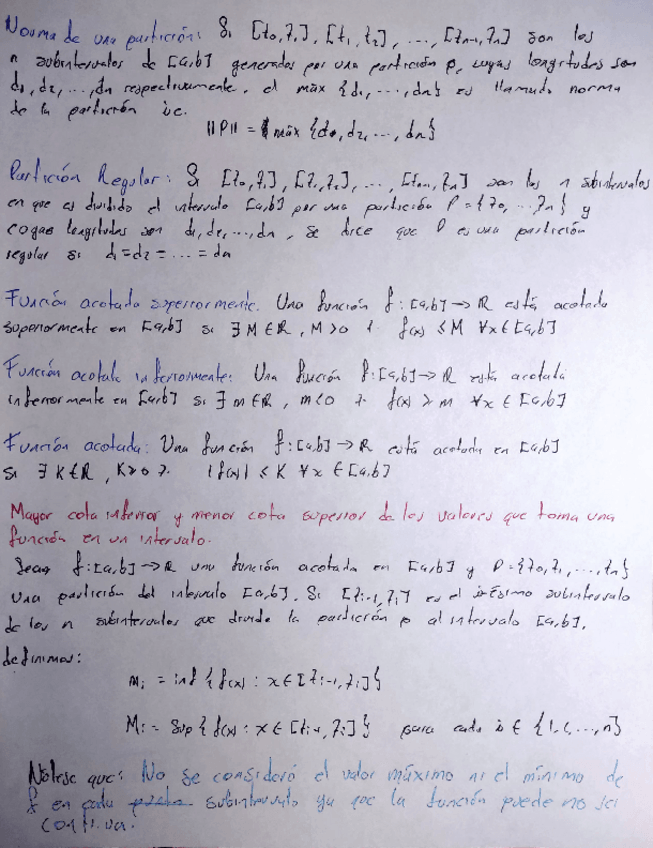 Norma de una partición: Si [t0,t1], [t1,t2], ..., [tn-1,tn] son los
n subintervalos de [a,b] generados por una partición p, cuyas longitudes son
d1, d2, ..., dn respectivamente. el máx {d1, ..., dn} es llamado norma
de la partición i.e.
||P|| = máx {d0, d2, ..., dn}
Partición Regular: Si [t0,t1], [t1,t2], ..., [tn-1,tn] son los n subintervalos
en que es dividido el intervalo [a,b] por una partición P = {t0, ... tn} y
cuyas longitudes son d1, d2, ..., dn, se dice que P es una partición
regular si d1 = d2 = ... = dn
Función acotada superiormente. Una función f: [a,b] → ℝ está acotada
superiormente en [a,b] si ∃ M ∈ ℝ, M > 0 t. f(x) ≤ M ∀x ∈ [a,b]
Función acotada inferiormente: Una función f: [a,b] → ℝ está acotada
inferiormente en [a,b] si ∃ m ∈ ℝ, m < 0 t. f(x) ≥ m ∀x ∈ [a,b]
Función acotada: Una función f: [a,b] → ℝ está acotada en [a,b]
Si ∃ K ∈ ℝ, K > 0 t. |f(x)| ≤ K ∀x ∈ [a,b]
Mayor cota inferior y menor cota superior de los valores que toma una
función en un intervalo.
Sean f: [a,b] → ℝ una función acotada en [a,b] y P = {t0, t1, ..., tn}
una partición del intervalo [a,b]. Si [ti-1, ti] es el iésimo subintervalo
de los n subintervalos que divide la partición p al intervalo [a,b].
definimos:
mi = inf {f(x) : x ∈ [ti-1, ti]}
Mi = Sup {f(x) : x ∈ [ti-1, ti]} para cada i ∈ {1, 2, ..., n}
Nótese que: No se consideró el valor máximo ni el mínimo de
f en cada subintervalo ya que la función puede no ser
continua.